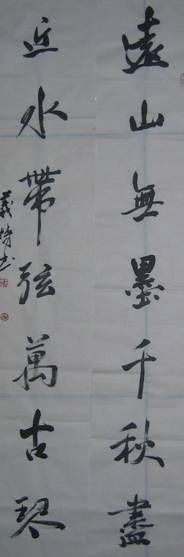 遠山無墨千秋盡
近水帶弦萬古琴
義
书